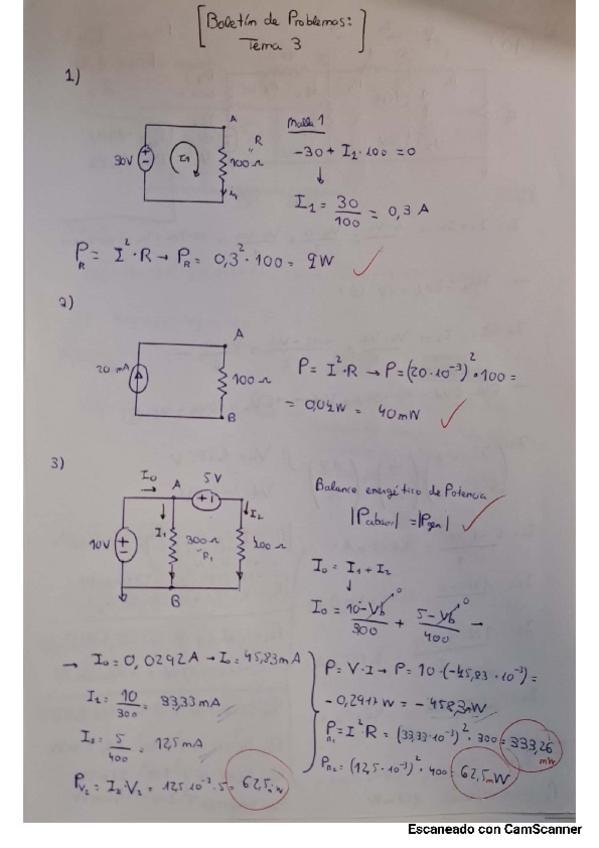 [Boletín de Problemas:
Tema 3]
1)
A
Malla 1
R
"
30V
I1
100 Ω
i1
-30 + I1·100 = 0
↓
I1 = 30/100 = 0,3 A
P_R = I²·R → P_R = 0,3²·100 = 9W
2)
A
20 mA
100 Ω
B
P = I²·R → P = (20·10⁻³)²·100 =
= 0,04W = 40mW
3)
I0
A
5V
I1
I2
10V
300 Ω
"R1
400 Ω
B
Balance energético de Potencia
|Pabsor| = |Pgen|
I0 = I1 + I2
↓
I0 = 10-Vb/300 + 5-Vb/400 →
0
0
→ I0 = 0,0292A → I0 = 45,83mA
I1 = 10/300 = 33,33mA
I2 = 5/400 = 12,5mA
P_V2 = I2·V2 = 12,5·10⁻³·5 = 62,5mW
P = V·I → P = 10·(-45,83·10⁻³) =
-0,2917W = -458,3mW
P_R1 = I²·R = (33,33·10⁻³)²·300 = 333,26 mW
P_R2 = (12,5·10⁻³)²·400 = 62,5mW
Escaneado con CamScanner